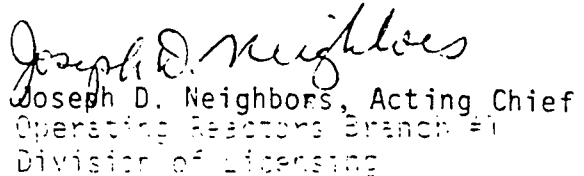 Joseph D. Neighbors
Joseph D. Neighbors, Acting Chief
Operating Reactors Branch #1
Division of Licensing